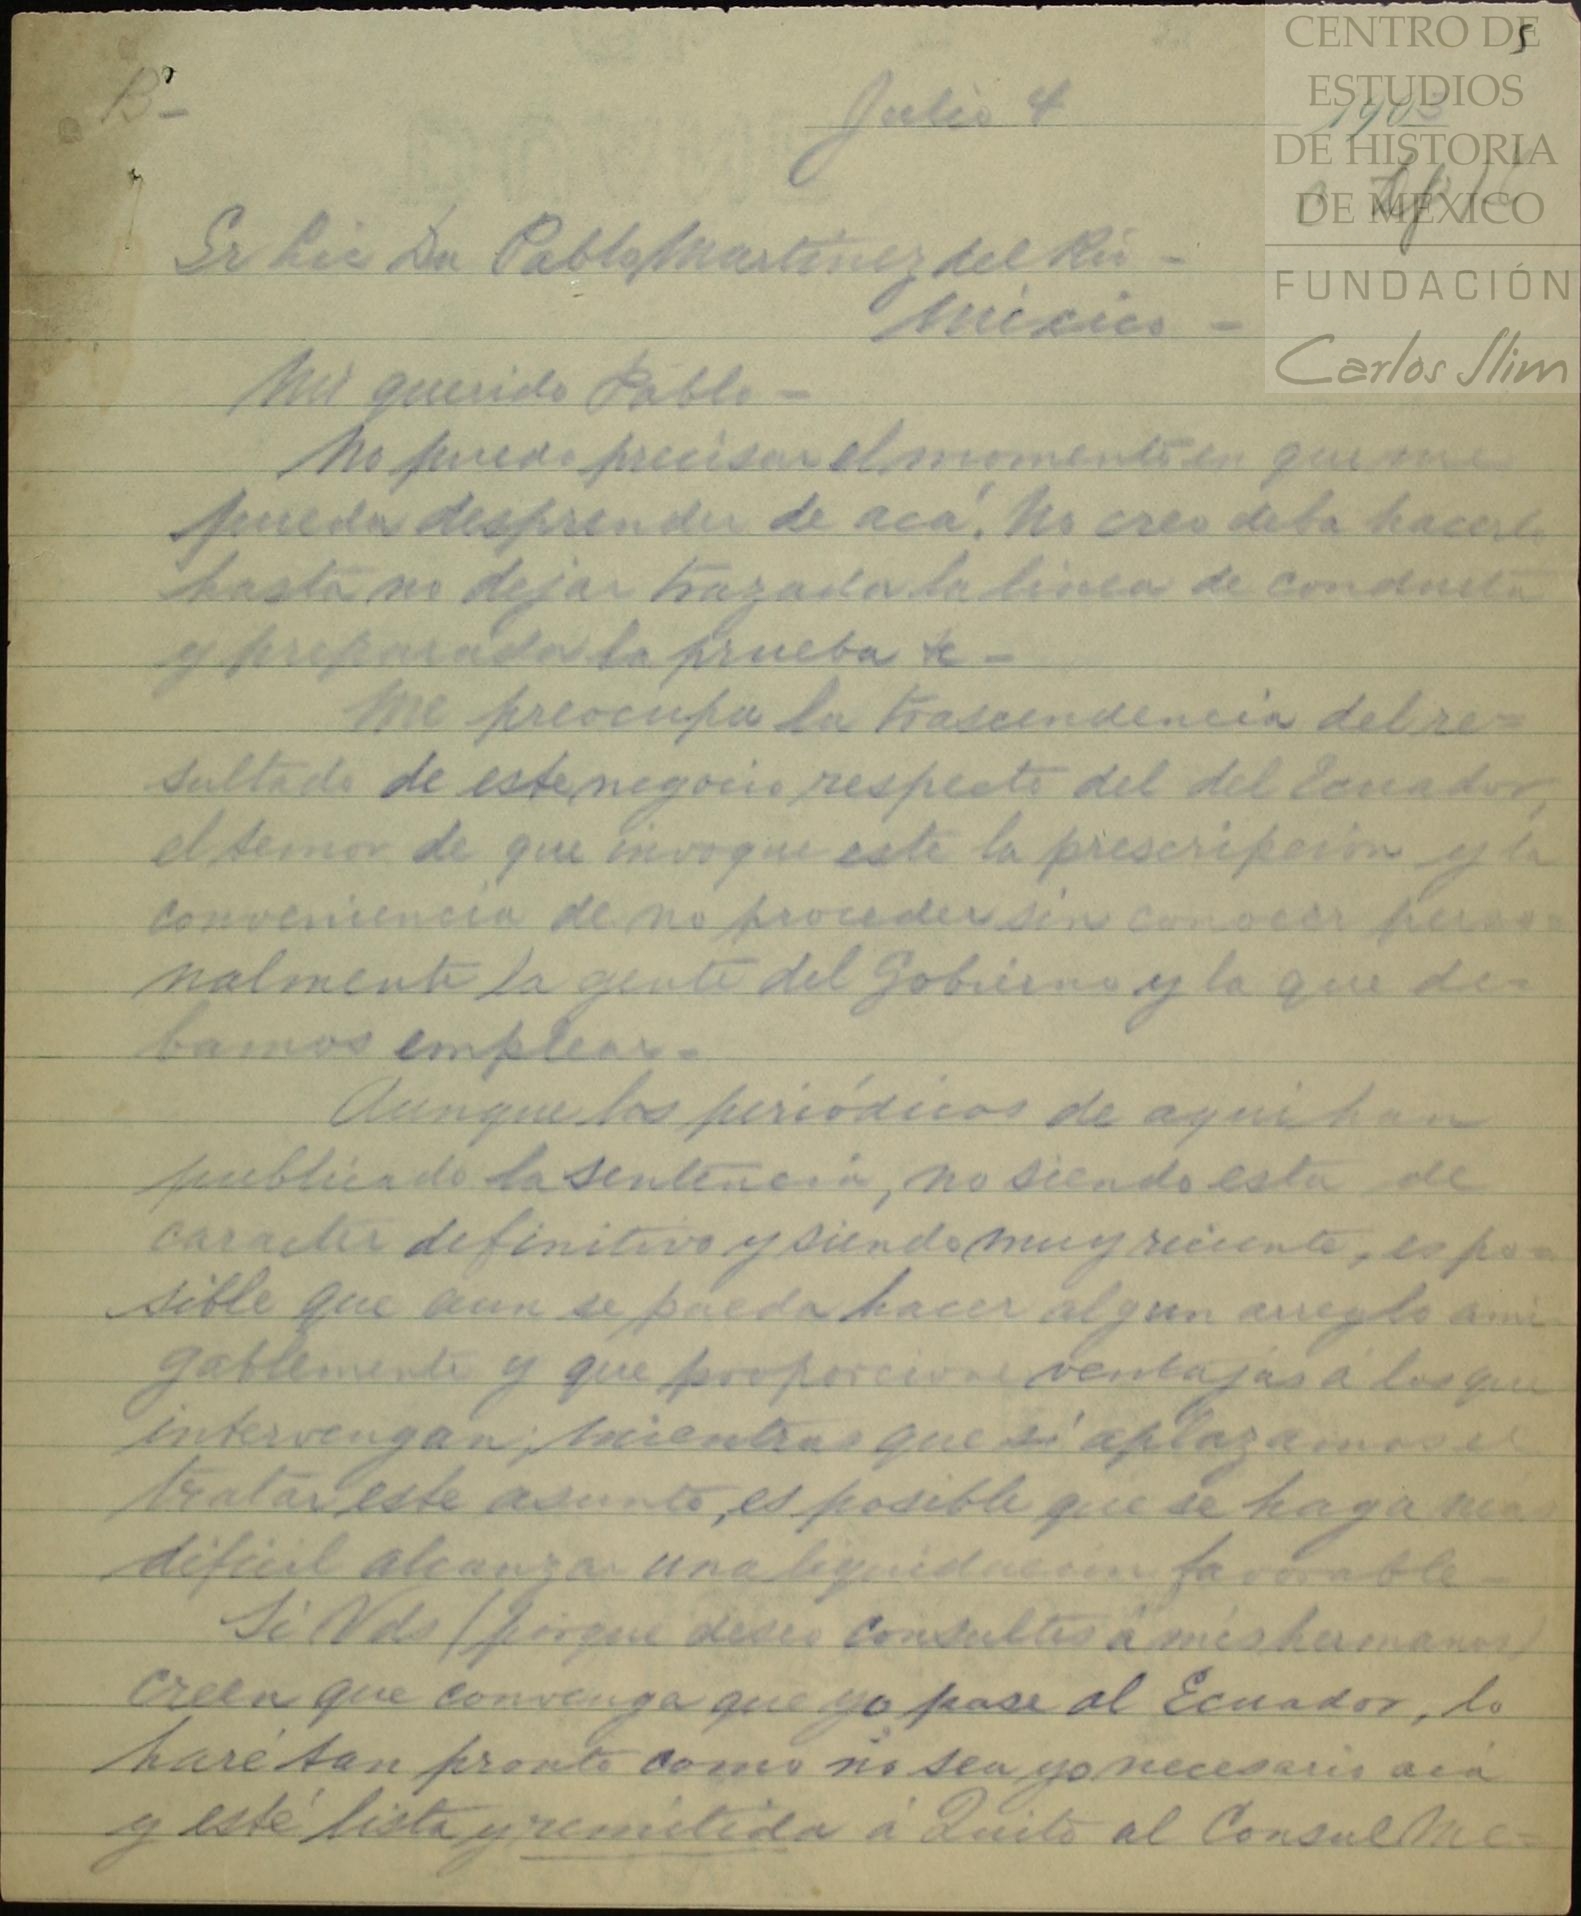 CENTRO DE
ESTUDIOS
DE HISTORIA
DE MÉXICO
FUNDACIÓN
Carlos Slim
5
B-
Julio 4 190
Sr Lic Dn Pablo Martinez del Rio -
México -
Mi querido Pablo -
No puedo precisar el momento en que me
pueda desprender de acá. No creo deba hacerlo
hasta no dejar trazada la linea de conducta
y preparada la prueba &c -
Me preocupa la trascendencia del re=
sultado de este negocio respecto del del Ecuador,
el temor de que invoque este la prescripcion y la
conveniencia de no proceder sin conocer perso=
nalmente la gente del Gobierno y la que de=
bamos emplear -
Aunque los periódicos de aqui han
publicado la sentencia, no siendo esta de
caracter definitivo y siendo muy reciente, es po=
sible que aun se pueda hacer algun arreglo ami
gablemente y que proporcione ventajas á los que
intervengan; mientras que si aplazamos el
tratar este asunto, es posible que se haga mas
dificil alcanzar una liquidacion favorable -
Si Vds (porque deseo consultes á mis hermanos)
creen que convenga que yo pase al Ecuador, lo
haré tan pronto como no sea yo necesario acá
y esté lista y remitida á Quito al Consul Me=